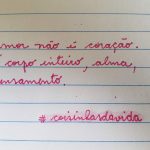 amor não é coração.
corpo inteiro, alma,
ensamento.
#coisinhasdavida